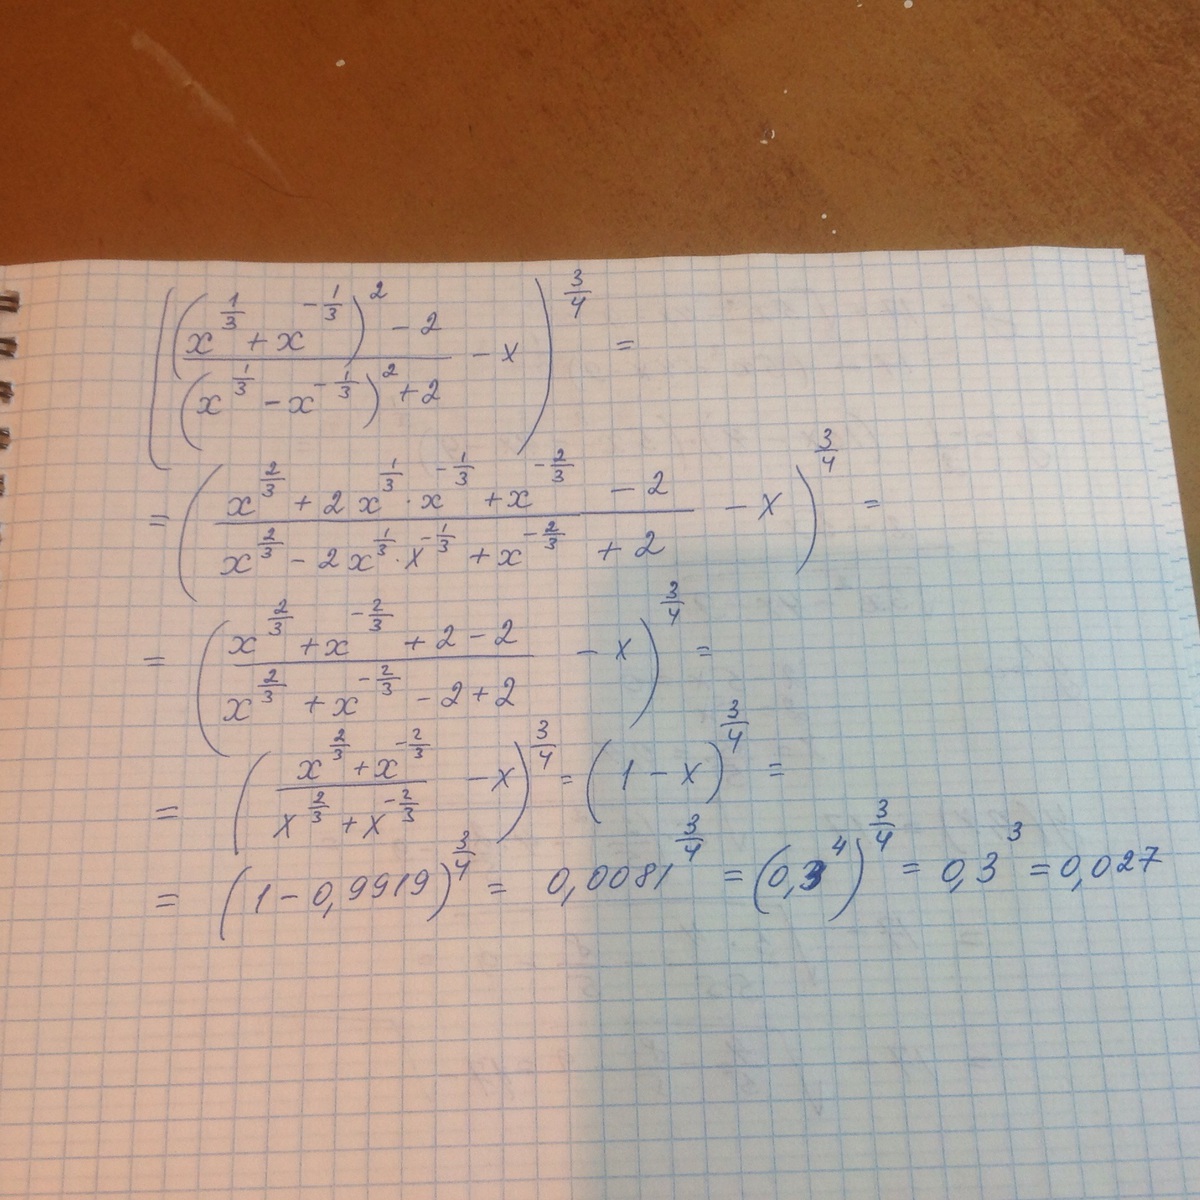 (((x^(1/3) + x^(-1/3))^2 - 2) / ((x^(1/3) - x^(-1/3))^2 + 2) - x)^(3/4) =
= ((x^(2/3) + 2x^(1/3) · x^(-1/3) + x^(-2/3) - 2) / (x^(2/3) - 2x^(1/3) · x^(-1/3) + x^(-2/3) + 2) - x)^(3/4) =
= ((x^(2/3) + x^(-2/3) + 2 - 2) / (x^(2/3) + x^(-2/3) - 2 + 2) - x)^(3/4) =
= ((x^(2/3) + x^(-2/3)) / (x^(2/3) + x^(-2/3)) - x)^(3/4) = (1 - x)^(3/4) =
= (1 - 0,9919)^(3/4) = 0,0081^(3/4) = (0,3^4)^(3/4) = 0,3^3 = 0,027